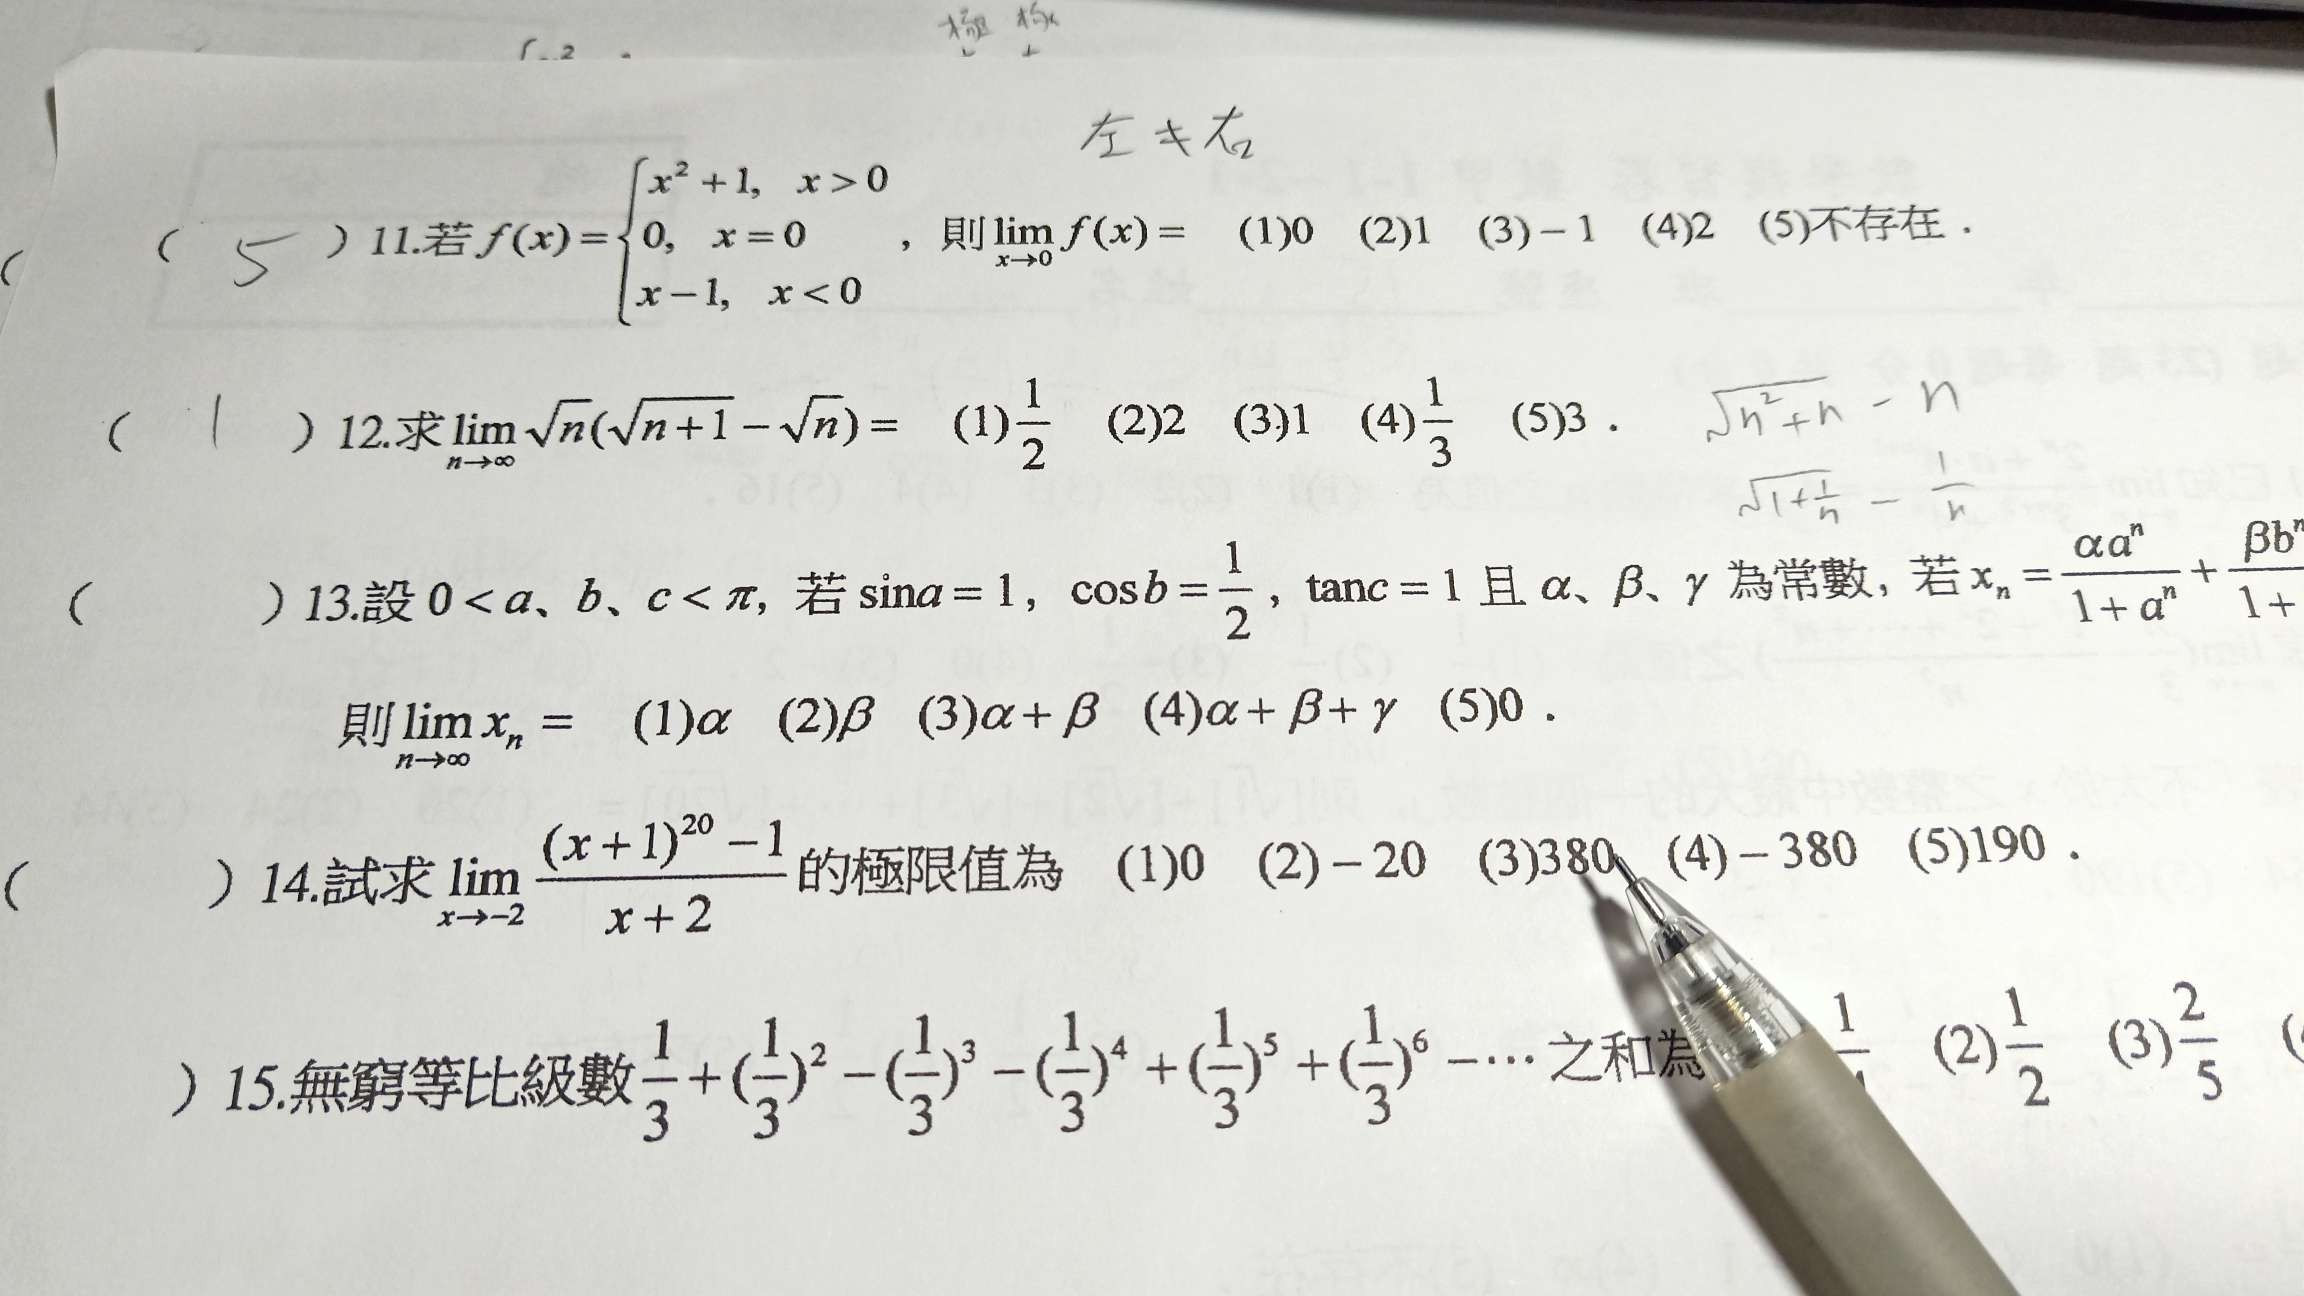 左 ≠ 右
( 5 ) 11.若 f(x) = { x² + 1, x > 0
0, x = 0
x − 1, x < 0 , 則 lim x→0 f(x) = (1)0 (2)1 (3) − 1 (4)2 (5)不存在．
( 1 ) 12.求 lim n→∞ √n(√(n+1) − √n) = (1) 1/2 (2)2 (3)1 (4) 1/3 (5)3．
√(n²+n) − n
√(1+1/n) − 1/n
( ) 13.設 0 < a、b、c < π, 若 sin a = 1, cos b = 1/2, tan c = 1 且 α、β、γ 為常數, 若 xₙ = αaⁿ/(1 + aⁿ) + βbⁿ/(1 +
則 lim n→∞ xₙ = (1)α (2)β (3)α + β (4)α + β + γ (5)0．
( ) 14.試求 lim x→−2 ((x + 1)²⁰ − 1)/(x + 2) 的極限值為 (1)0 (2) − 20 (3)380 (4) − 380 (5)190．
) 15.無窮等比級數 1/3 + (1/3)² − (1/3)³ − (1/3)⁴ + (1/3)⁵ + (1/3)⁶ − ⋯ 之和為 (2) 1/2 (3) 2/5